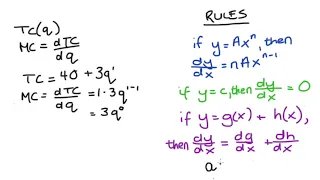 TC(q)
MC = dTC/dq
TC = 40 + 3q¹
MC = dTC/dq = 1·3q¹⁻¹
= 3q⁰
RULES
if y = Axⁿ, then
dy/dx = nAxⁿ⁻¹
if y = c, then dy/dx = 0
if y = g(x) + h(x),
then dy/dx = dg/dx + dh/dx
a